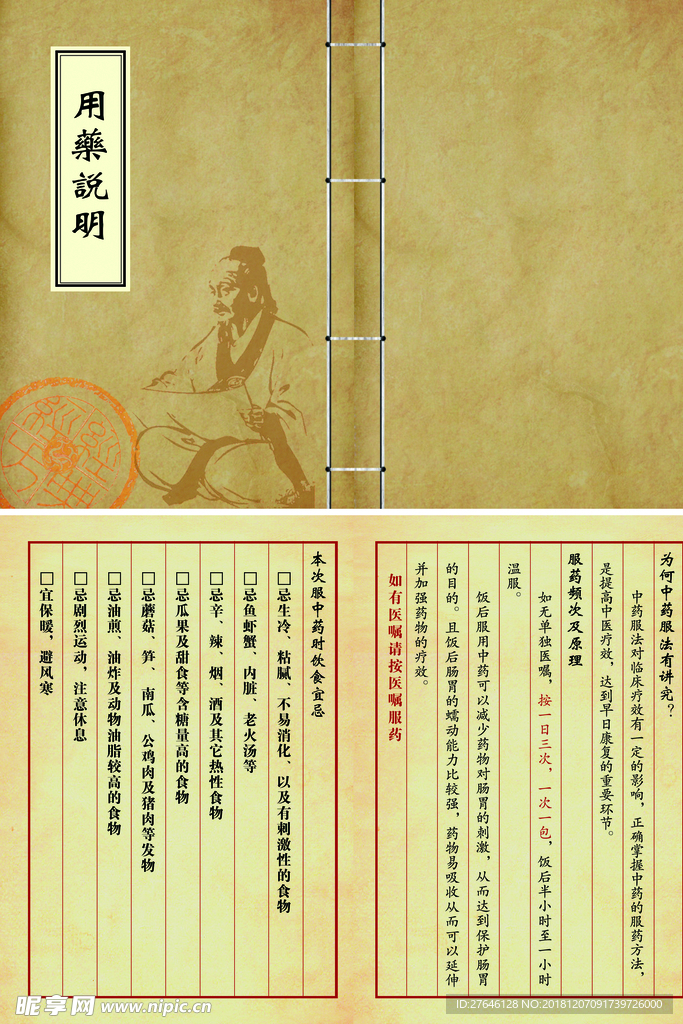 用藥説明
为何中药服法有讲究？
中药服法对临床疗效有一定的影响，正确掌握中药的服药方法，
是提高中医疗效，达到早日康复的重要环节。
服药频次及原理
如无单独医嘱，按一日三次，一次一包，饭后半小时至一小时
温服。
饭后服用中药可以减少药物对肠胃的刺激，从而达到保护肠胃
的目的。且饭后肠胃的蠕动能力比较强，药物易吸收从而可以延伸
并加强药物的疗效。
如有医嘱请按医嘱服药
本次服中药时饮食宜忌
□忌生冷、粘腻、不易消化、以及有刺激性的食物
□忌鱼虾蟹、内脏、老火汤等
□忌辛、辣、烟、酒及其它热性食物
□忌瓜果及甜食等含糖量高的食物
□忌蘑菇、笋、南瓜、公鸡肉及猪肉等发物
□忌油煎、油炸及动物油脂较高的食物
□忌剧烈运动，注意休息
□宜保暖，避风寒
昵享网 www.nipic.cn
ID:27646128 NO:20181207091739726000